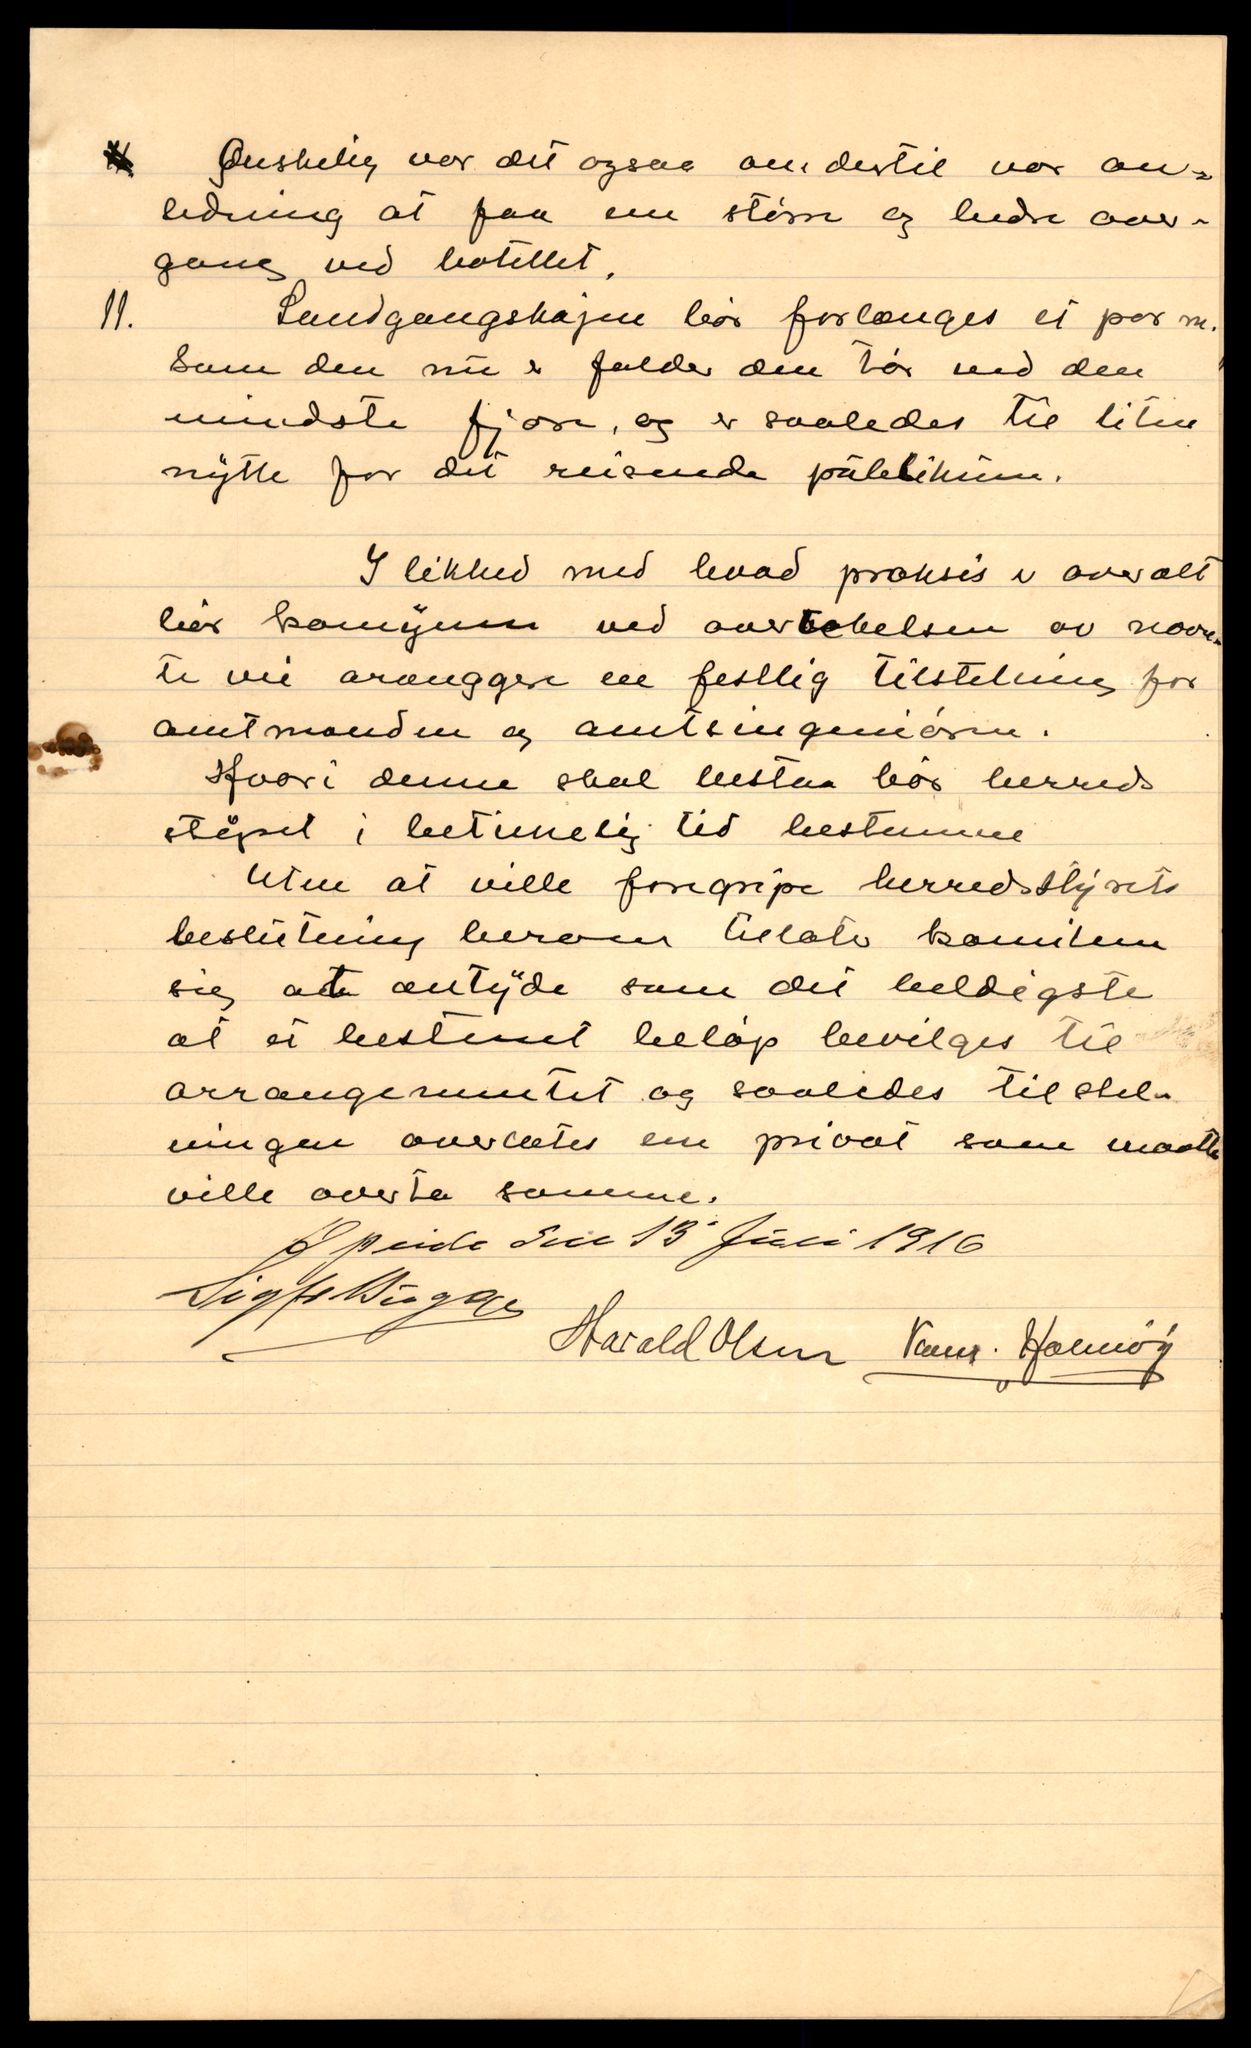 Ønskelig var det ogsaa om dertil var an-
ledning at faa en større og bedre over-
gang ved hotellet.
11. Landgangskajen bør forlænges et par m.
Som den nu er falder den tør ved den
mindste fjære, og er saaledes til liten
nytte for det reisende publikum.
I likhed med hvad praksis er overalt
bør komynen ved overtakelsen av nævn-
te vei arranggere en festlig tilstelning for
amtmanden og amtsingeniøren.
Hvori denne skal bestaa bør herreds
styret i betimelig tid bestemme
Uten at ville foregripe herredsstyrets
beslutning herom tillater komiteen
sig at antyde som det heldigste
at et bestemt beløp bevilges til
arrangementet og saaledes tilstel-
ningen overlates en privat som maatte
ville overta samme.
den 13 Juni 1916
Sigf Bugge
Harald Olsen Holmøy